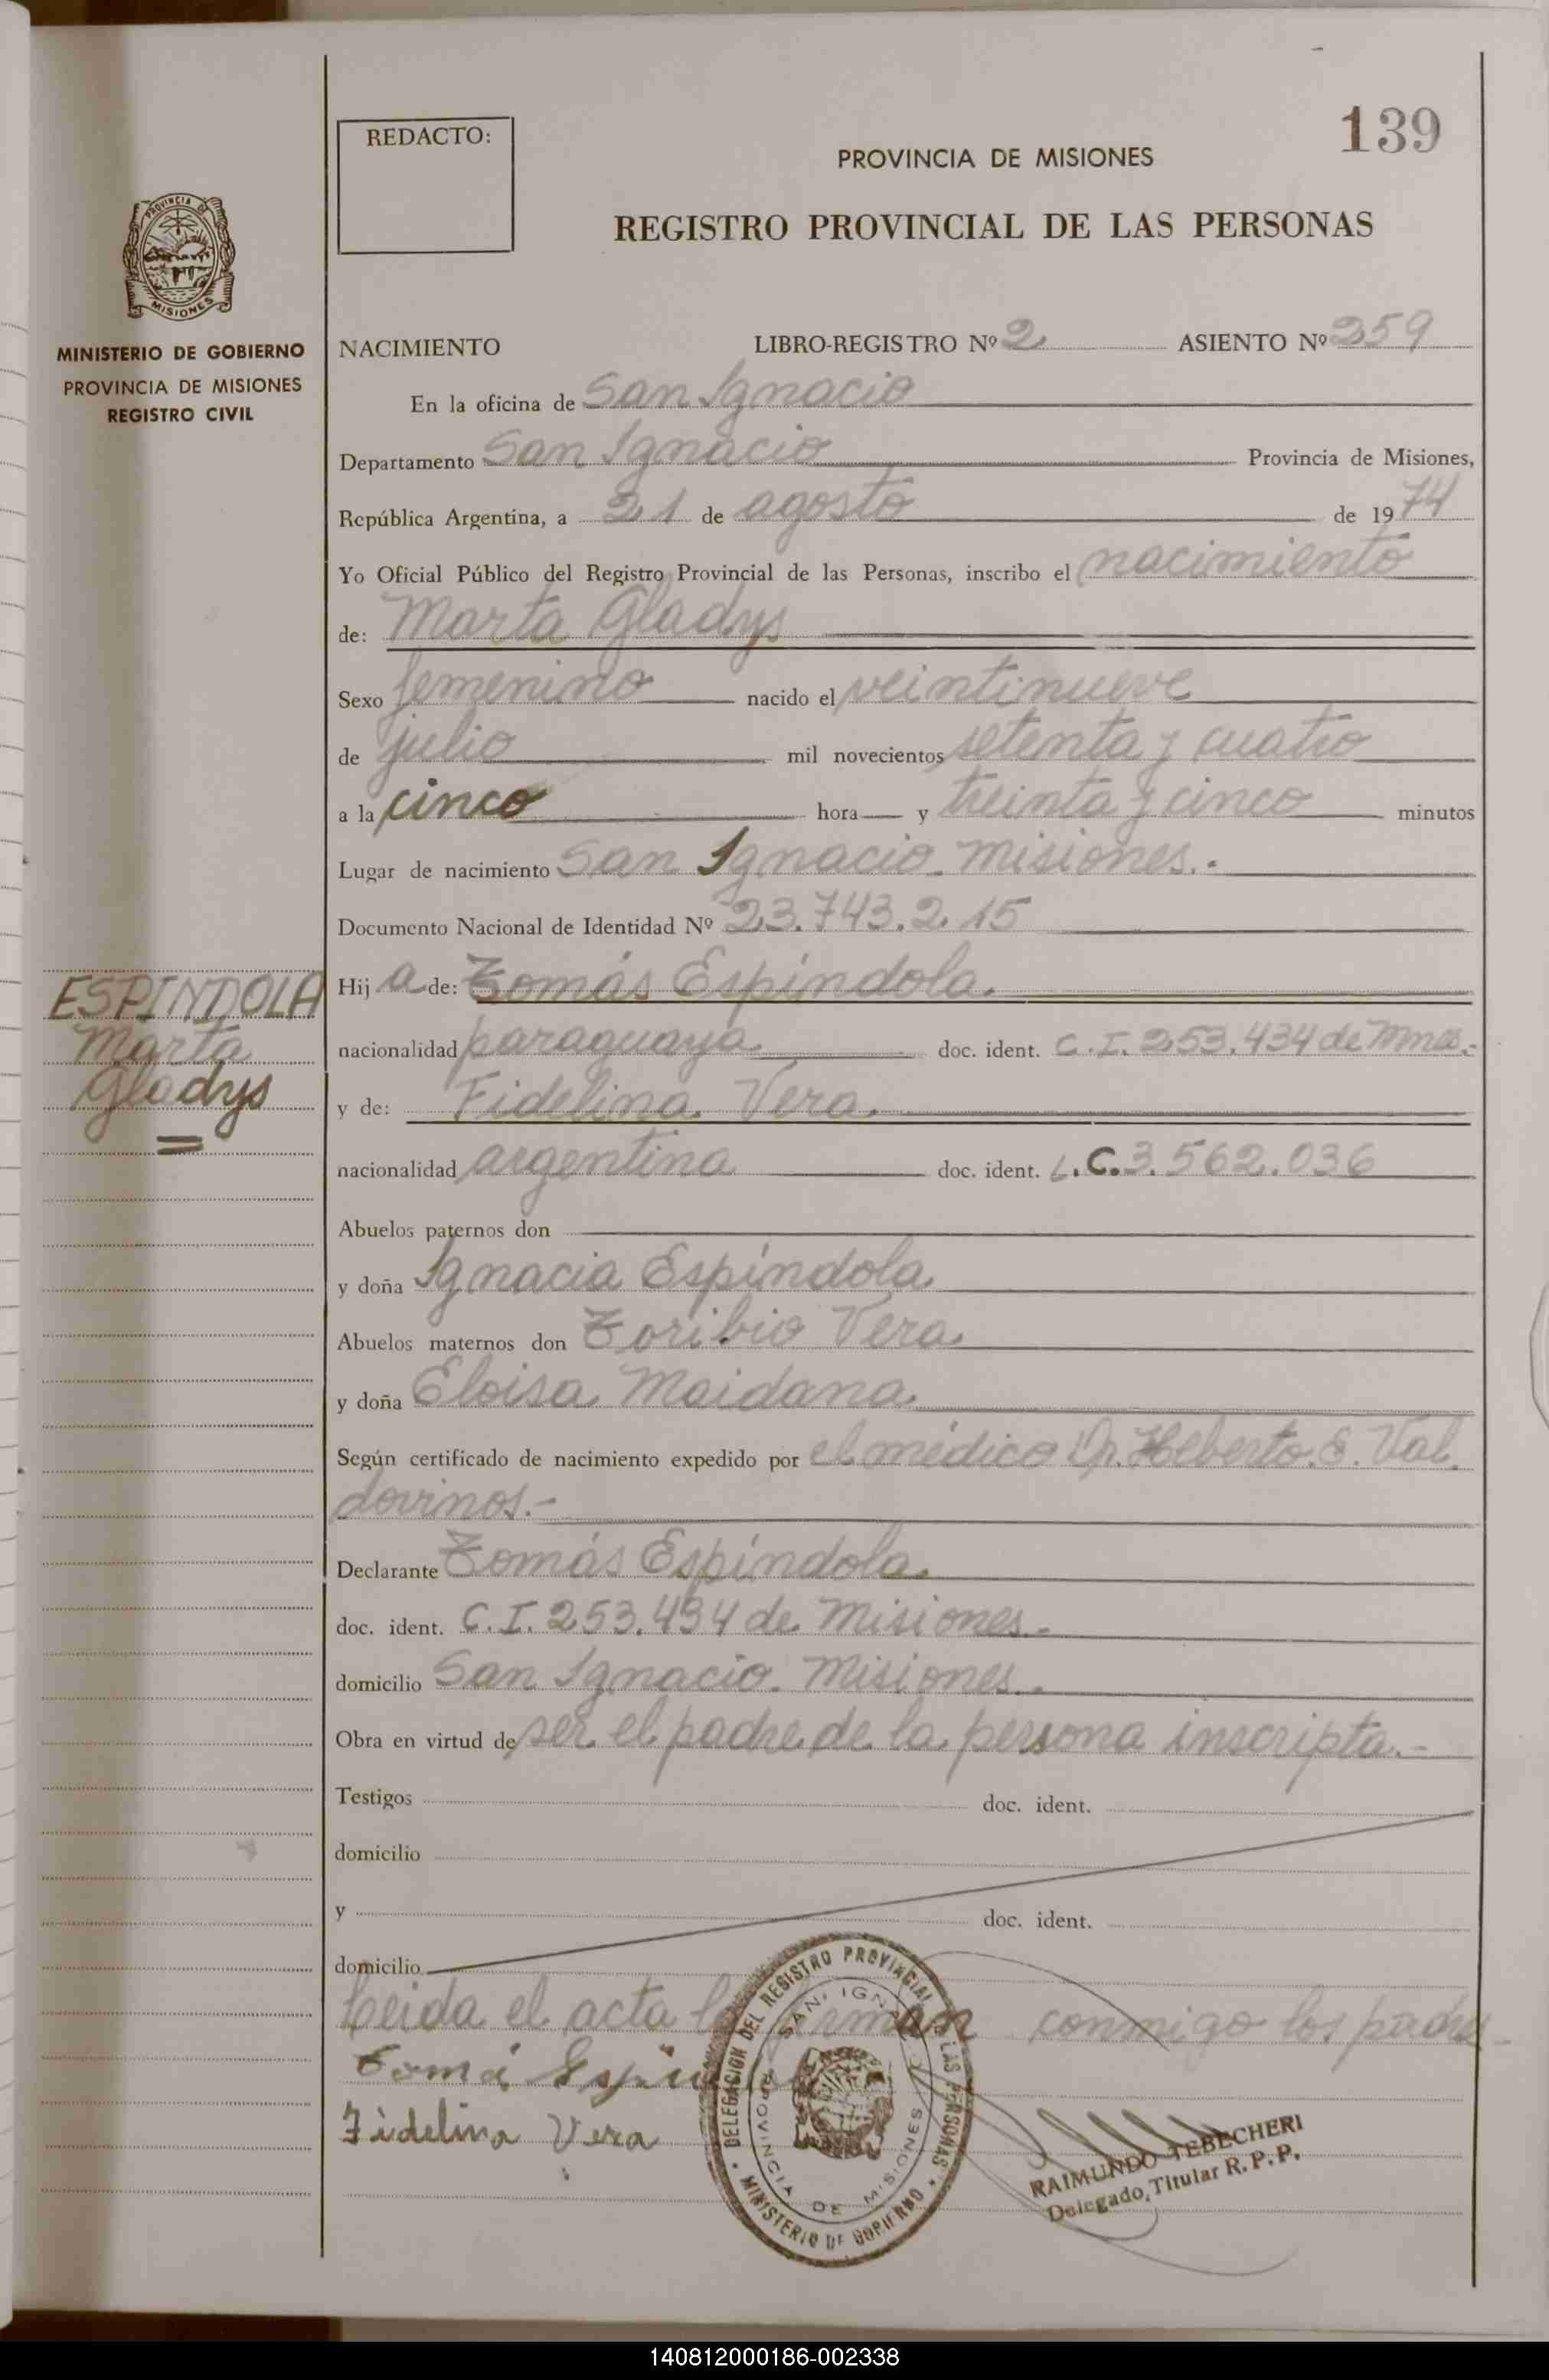 139
REDACTO:
PROVINCIA DE MISIONES
REGISTRO PROVINCIAL DE LAS PERSONAS
PROVINCIA DE
MISIONES
MINISTERIO DE GOBIERNO
PROVINCIA DE MISIONES
REGISTRO CIVIL
NACIMIENTO LIBRO-REGISTRO Nº 2 ASIENTO Nº 259
En la oficina de San Ignacio
Departamento San Ignacio Provincia de Misiones,
República Argentina, a 21 de agosto de 1974
Yo Oficial Público del Registro Provincial de las Personas, inscribo el nacimiento
de: Marta Gladys
Sexo femenino nacido el veintinueve
de julio mil novecientos setenta y cuatro
a la cinco hora y treinta y cinco minutos
Lugar de nacimiento San Ignacio. Misiones.-
Documento Nacional de Identidad Nº 23.743.215
ESPINDOLA
Marta
Gladys
Hija de: Tomás Espíndola.
nacionalidad paraguaya doc. ident. C.I. 253.434 de Mnes.-
y de: Fidelina Vera.
nacionalidad argentina doc. ident. L.C. 3.562.036
Abuelos paternos don
y doña Ignacia Espíndola
Abuelos maternos don Toribio Vera
y doña Eloisa Maidana
Según certificado de nacimiento expedido por el médico Dr. Heberto. E. Val
dovinos.-
Declarante Tomás Espíndola.
doc. ident. C.I. 253.434 de Misiones.-
domicilio San Ignacio. Misiones.-
Obra en virtud de ser el padre de la persona inscripta.-
Testigos doc. ident.
domicilio
y doc. ident.
domicilio
Leida el acta la firman conmigo los padres
Tomá Espindola
Fidelina Vera
DELEGACION DEL REGISTRO PROVINCIAL DE LAS PERSONAS
MINISTERIO DE GOBIERNO
SAN IGNACIO
PROVINCIA DE MISIONES
RAIMUNDO TEBECHERI
Delegado Titular R. P. P.
140812000186-002338